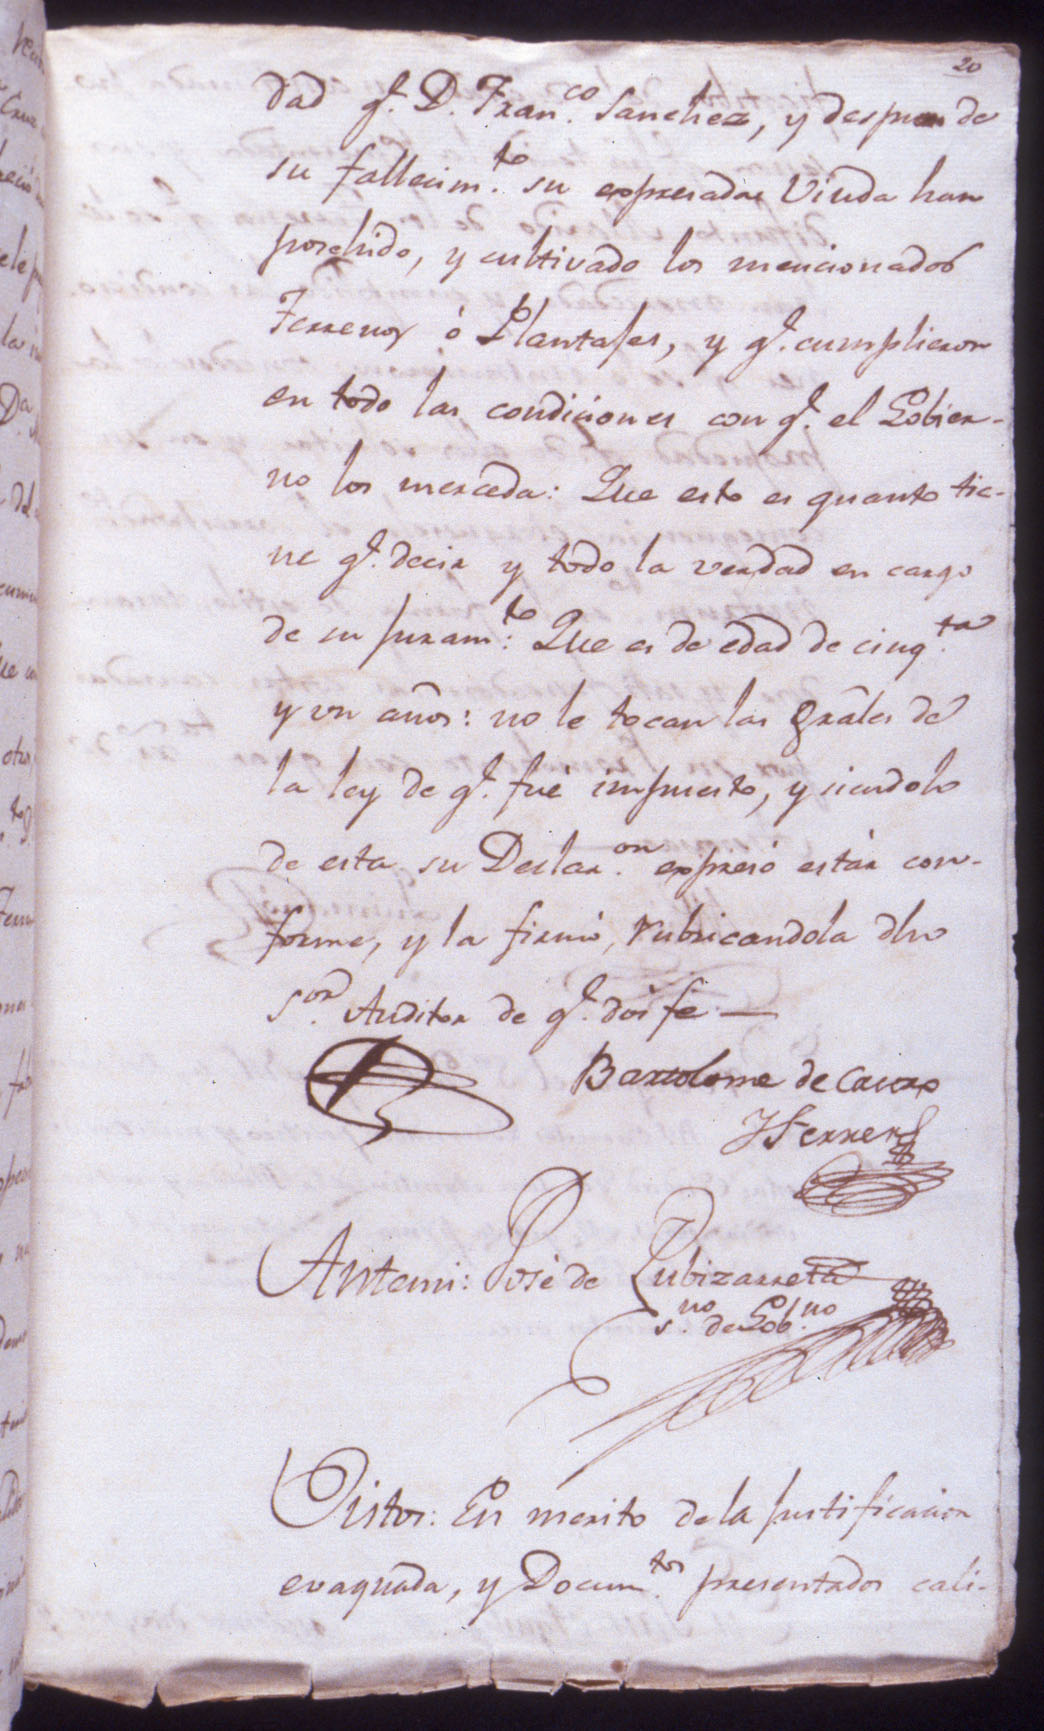 20
dad q.e D. Fran.co Sanchez, y despues de
su fallecim.to su expresada Viuda han
posehido, y cultivado los mencionados
Terrenos ó Plantajes, y q.e cumplieron
en todo las condiciones con q.e el Gobier-
no los merceda: Que esto es quanto tie-
ne q.e decir y todo la verdad en cargo
de su juram.to Que es de edad de cinq.ta
y un años: no le tocan las grales de
la ley de q.e fué impuesto, y siendolo
de esta su Declar.on expresó estár con-
forme, y la firmó, rubricandola dho
S.or Auditor de q.e doi fe —
Bartolome de Castro
y Ferrer
Antemi: José de Zubizarreta
s.no de Gob.no
Vistos: En merito de la justificacion
evaquada, y Docum.tos presentados cali-